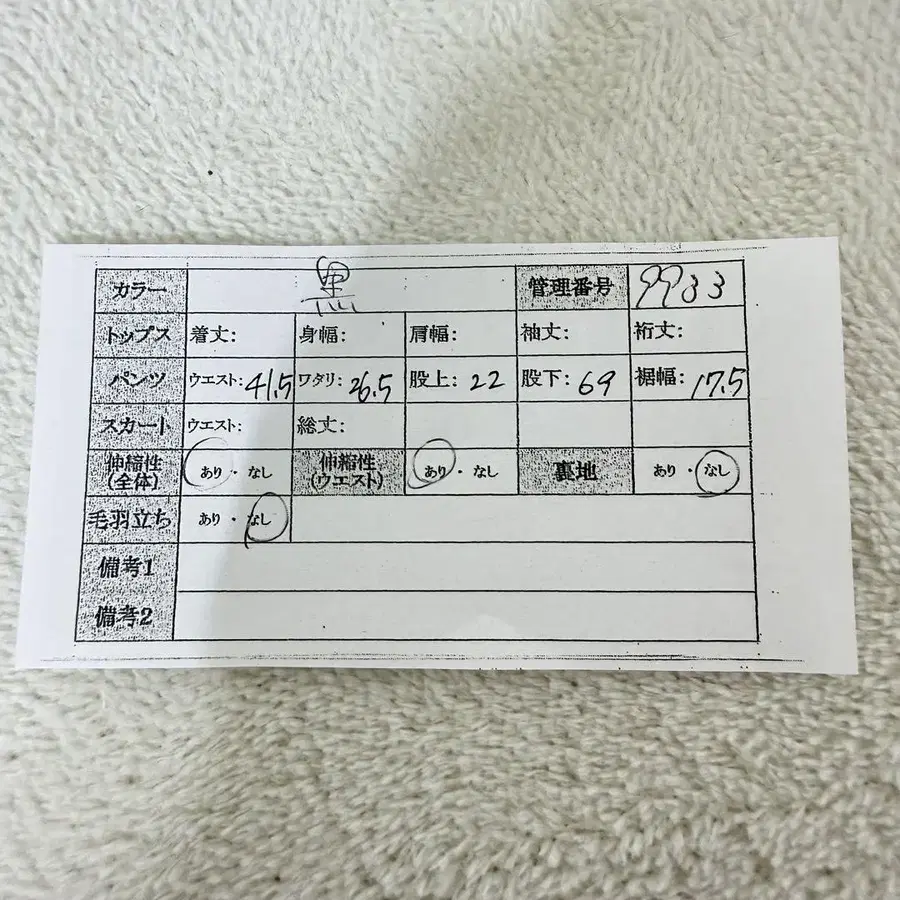 カラー 黒 管理番号 9933
トップス 着丈: 身幅: 肩幅: 袖丈: 裄丈:
パンツ ウエスト: 41.5 ワタリ: 26.5 股上: 22 股下: 69 裾幅: 17.5
スカート ウエスト: 総丈:
伸縮性(全体) あり・なし 伸縮性(ウエスト) あり・なし 裏地 あり・なし
毛羽立ち あり・なし
備考1
備考2